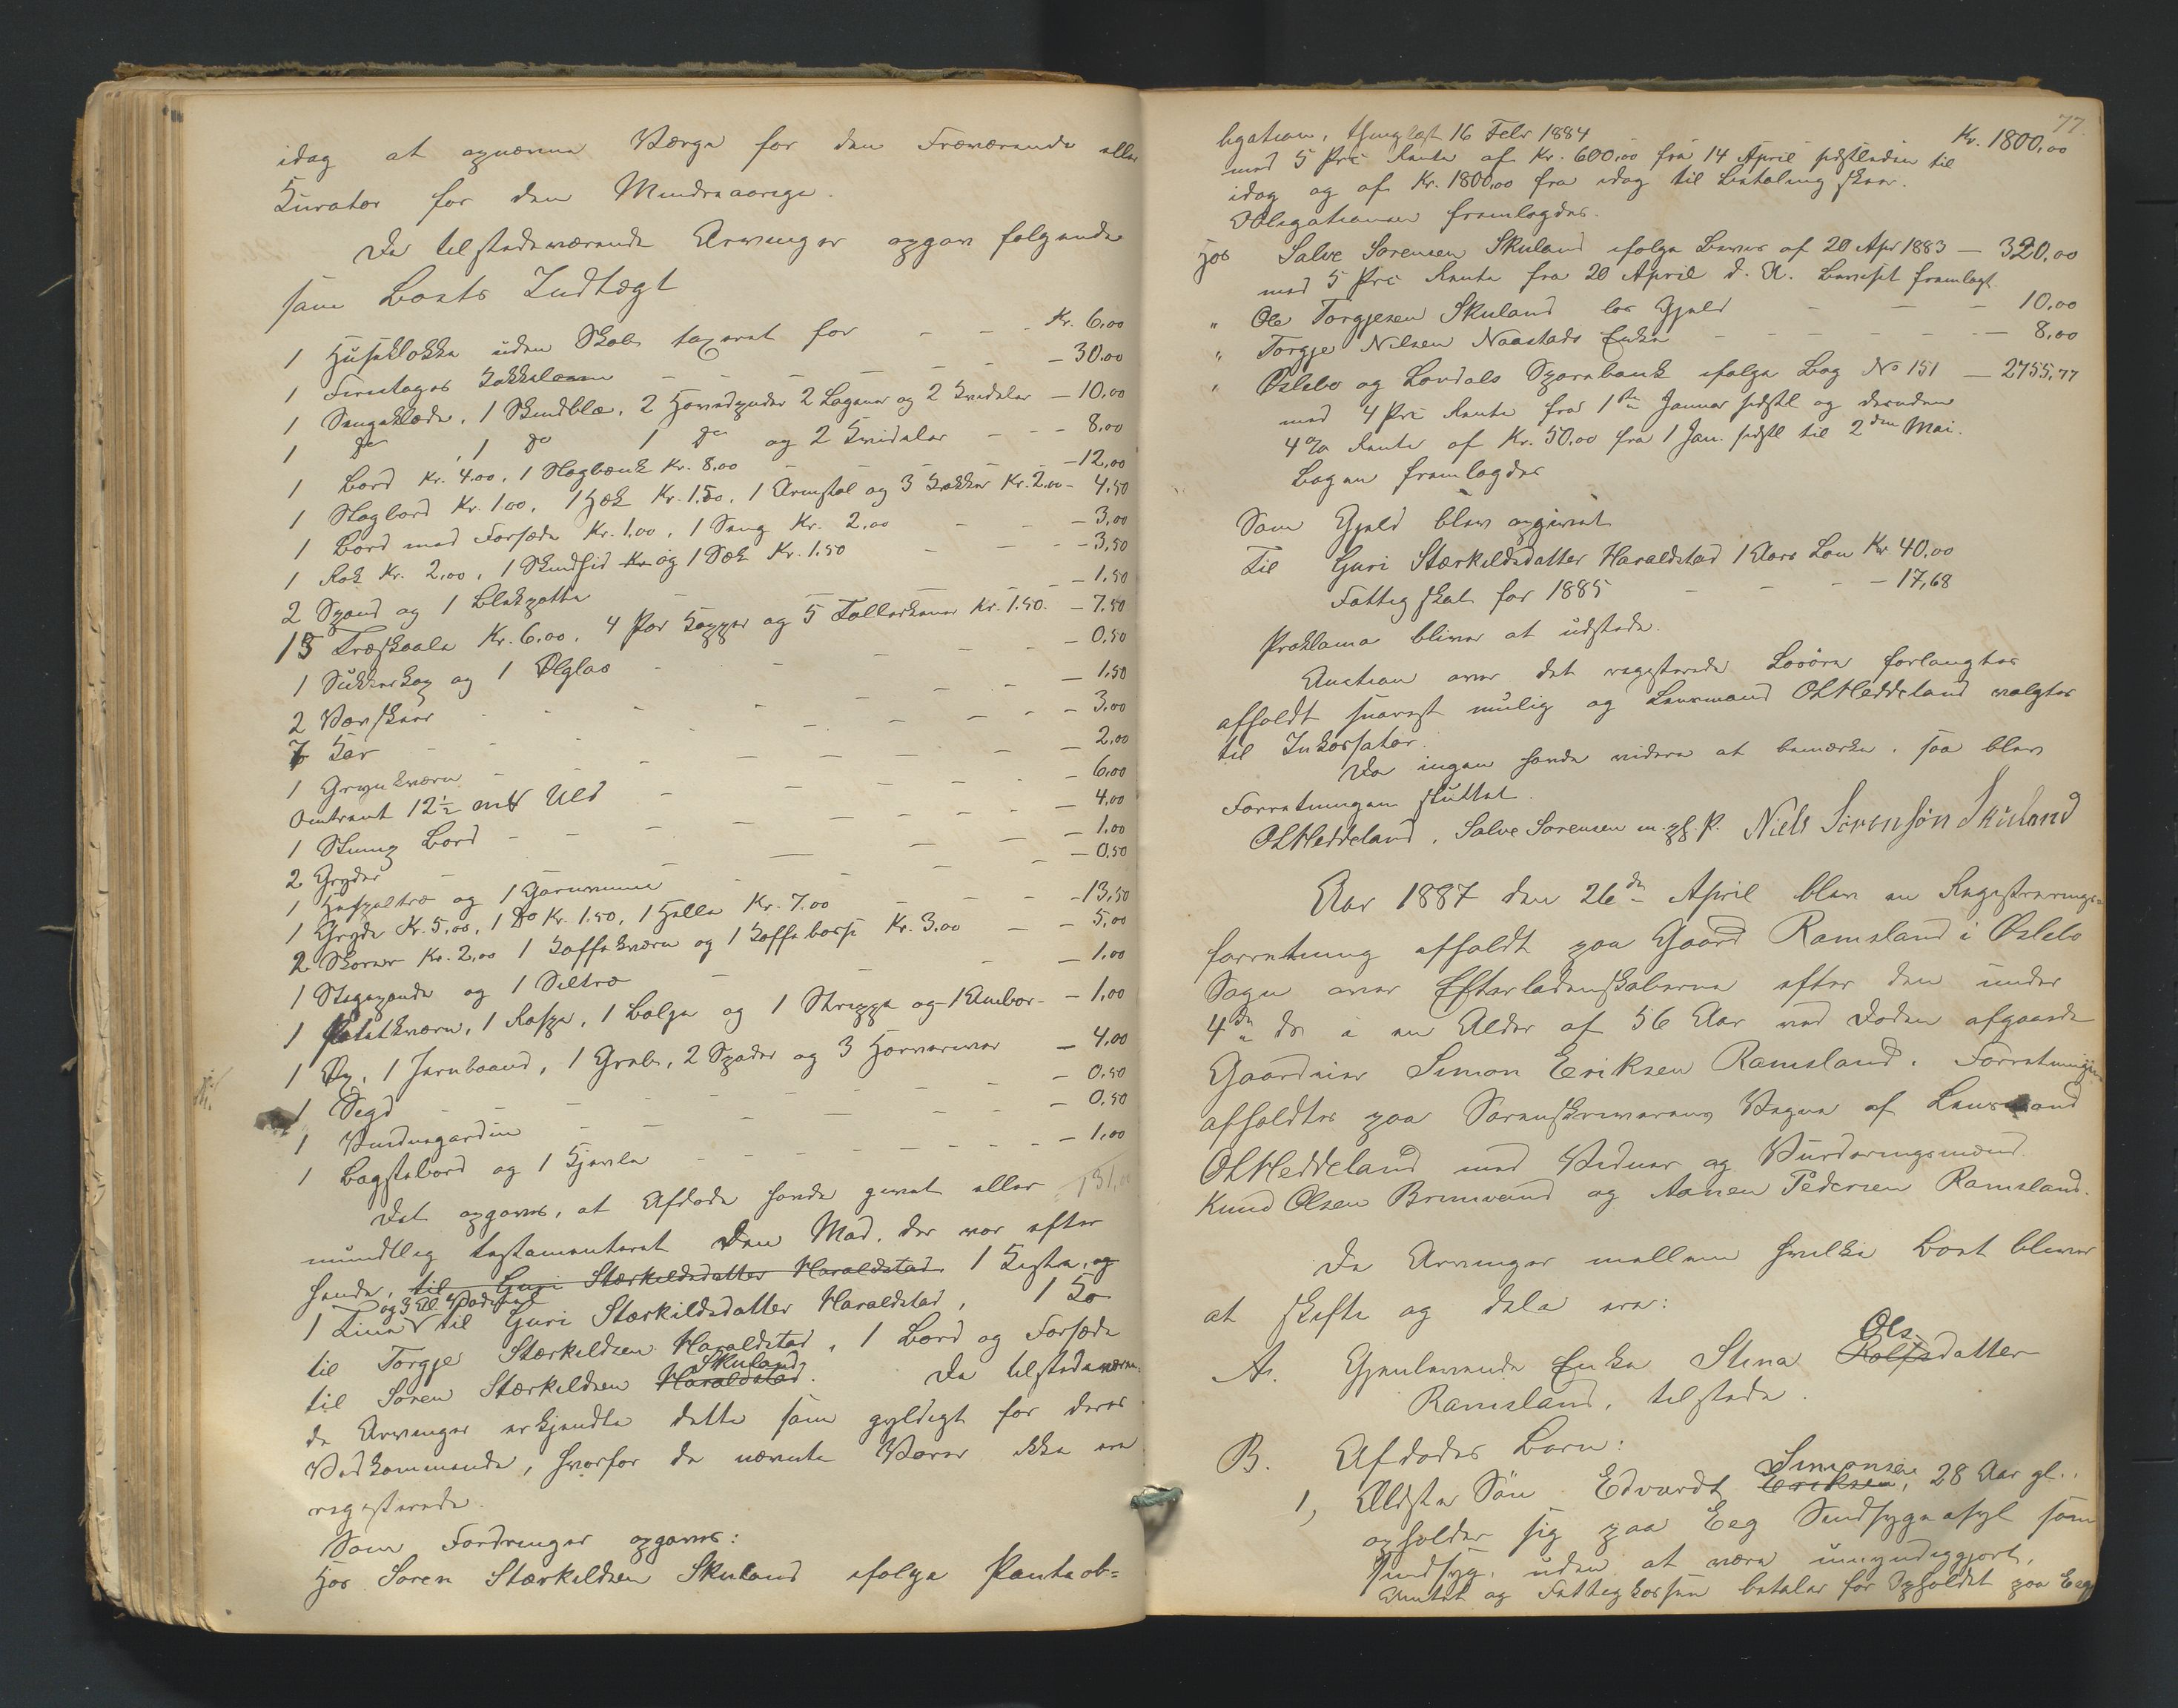 idag at opnævne Værge for den Fraværende eller
Kurator for den Mindreaarige.
De tilstedeværende Arvinger opgav følgende
som Boets Indtægt
1 Huseklokke uden Skab taxeret for - - - Kr. 6,00
1 Firetages Kakkelovn - - - - 30,00
1 Sengeklæde, 1 Skindblæ, 2 Hovedpuder 2 Lagener og 2 Kvideler - 10,00
1 do , 1 do 1 do og 2 Kvideler - - - 8,00
1 Bord Kr. 4.00, 1 Slagbænk Kr. 8,00 - - - - 12,00
1 Slagbord Kr. 1.00, 1 Hæk Kr. 1.50, 1 Armstol og 3 Krakker Kr. 2.00 - 4,50
1 Bord med Forsæde Kr. 1.00, 1 Seng Kr. 2,00 - - - 3,00
1 Rok Kr. 2,00, 1 Skindfid Kr. og 1 Sæk Kr. 1.50 - - - 3,50
2 Spand og 1 Blekpotte - - - - 1,50
15 Træskaale Kr. 6.00, 4 Par Kopper og 5 Tallerkener Kr. 1.50. - 7,50
1 Sukkerkop og 1 Ølglas - - - - 0,50
2 Vævskeer - - - - 1,50
7 Kar - - - - 3,00
1 Grynkværn - - - - 2,00
Omtrent 12½ mk Uld - - - - 6,00
1 Stump Bord - - - - 4,00
2 Gryder - - - - 1,00
1 Haspeltræ og 1 Garnvinne - - - 0,50
1 Gryde Kr. 5,00, 1 Do Kr. 1.50, 1 Helle Kr. 7.00 - - - 13,50
2 Skorner Kr. 2,00 1 Kaffekværn og 1 Kaffebøsse Kr. 3.00 - - 5,00
1 Stegepande og 1 Siltræ - - - 1,00
1 Potetkværn, 1 Raspe, 1 Balge og 1 Strippe og 1 Ambar - - 1,00
1 Øx, 1 Jernbaand, 1 Greb, 2 Spader og 3 - 4,00
1 Segd - - - - 0,50
1 Vinduegardin - - - - 0,50
1 Bagstebord og 1 Kjevle - - - - 1,00
131,00
Det opgaves, at Afdøde havde givet eller
mundtlig testamenteret den Mad, der var efter
hende, til Guri Stærkildsdatter Haraldstad 1 Kiste, og
og 3 Al. Vadmel
1 Tine til Guri Stærkildsdatter Haraldstad, 1 Ko
til Torgje Stærkildsen Haraldstad, 1 Bord og Forsæde
Skuland
til Søren Stærkildsen Haraldstad. De tilstedeværen-
de Arvinger erkjendte dette som gyldigt for deres
Vedkommende, hvorfor de nævnte Varer ikke ere
registerede.
Som Fordringer opgaves:
Hos Søren Stærkildsen Skuland ifølge Panteob=
77.
ligation, thinglæst 16 Febr 1884 Kr. 1800,00
med 5 Pct Rente af Kr. 600,00 fra 14 April sidstleden til
idag og af Kr. 1800,00 fra idag til Betaling skeer.
Obligationen fremlagdes.
Hos Salve Sørensen Skuland ifølge Bevis af 20 Apr 1883 - 320,00
med 5 Pct Rente fra 20 April d. A. Beviset fremlagt.
" Ole Torgjesen Skuland løs Gjæld - - - 10,00
" Torgje Nilsen Naastads Enke - - - - 8,00
" Øslebø og Løvdals Sparebank ifølge Bog No 151 - 2755,77
med 4 Pct Rente fra 1ste Januar sidstl og desuden
4 % Rente af Kr. 50,00 fra 1 Jan. sidstl til 2den Mai.
Bogen fremlagdes
Som Gjæld blev opgivet
Til Guri Stærkildsdatter Haraldstad 1 Aars Løn Kr 40,00
Fattigskat for 1885 - - - 17,68
Proklama bliver at udstede.
Auction over det registerede Løsøre forlangtes
afholdt snarest mulig og Lensmand OHHeddeland valgtes
til Inkassator.
Da ingen havde videre at bemærke, saa blev
Forretningen sluttet.
OHHeddeland, Salve Sørensen m. p. P. Niels Sörensön Skuland
Aar 1887 den 26de April blev en Registrerings=
forretning afholdt paa Gaard Ramsland i Øslebø
Sogn over Efterladenskaberne efter den under
4de ds i en Alder af 56 Aar ved Døden afgaaede
Gaardeier Simon Eriksen Ramsland. Forretningen
afholdtes paa Sorenskriverens Vegne af Lensmand
OHHeddeland med Vidner og Vurderingsmænd
Knud Olsen Brunvand og Aanen Pedersen Ramsland.
De Arvinger mellem hvilke Boet bliver
at skifte og dele ere:
Ols
A. Gjenlevende Enke Stina Rolfsdatter
Ramsland, tilstede.
B. Afdødes Børn:
Simonsen
1, Ældste Søn Edvardt Eriksen, 28 Aar gl.,
opholder sig paa Eeg Sindsygeasyl som
sindsyg, uden at være umyndiggjort,
Amtet og Fattigkassen betaler for Opholdet paa Eeg